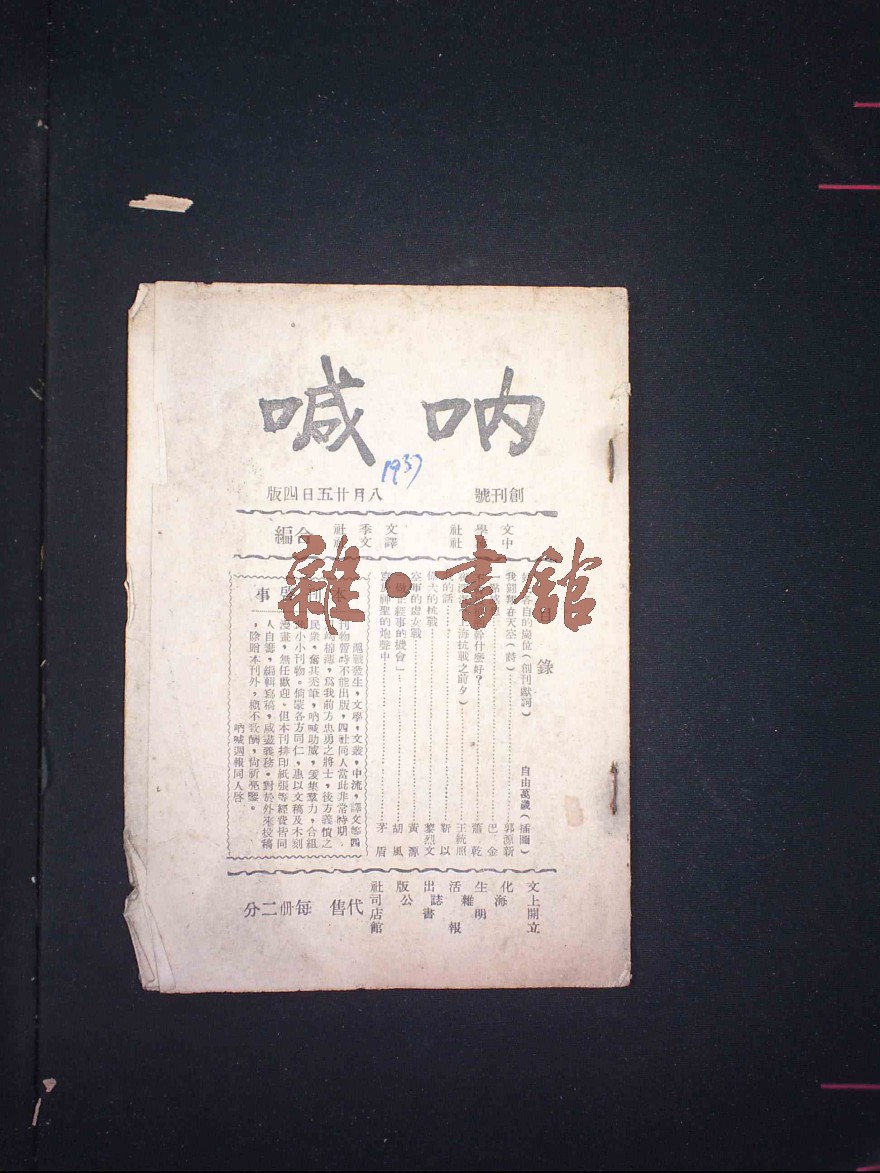 呐喊
1937
創刊號
八月廿五日四版
文學社
中
文
季
社
譯文社
合編
目錄
各自的崗位(創刊獻詞)
自由萬歲(插圖)
我翱翔在天空(詩)
郭源新
一點
巴金
幹什麼好?
蕭乾
海抗戰之前夕)
王統照
的話
靳以
偉大的抗戰
黎烈文
空軍的處女戰
黃源
做正經事的機會」
胡風
神聖的炮聲中
茅盾
本刊啓事
滬戰發生,文學,文叢,中流,譯文等四
刊物暫時不能出版,四社同人當此非常時期
棉薄,爲我前方忠勇之將士,後方義憤之
民衆,奮其禿筆,吶喊助威,爰集羣力,合組
小小刊物。倘蒙各方同仁,惠以文稿及木刻
漫畫,無任歡迎。但本刊排印紙張等經費皆同
人自籌,編輯寫稿,咸盡義務。對於外來投稿
,除贈本刊外,概不致酬,尚祈亮鑒。
吶喊週報同人啓
文化生活出版社
上海雜誌公司
開明書店
立報館
代售
每冊二分
雜·書館